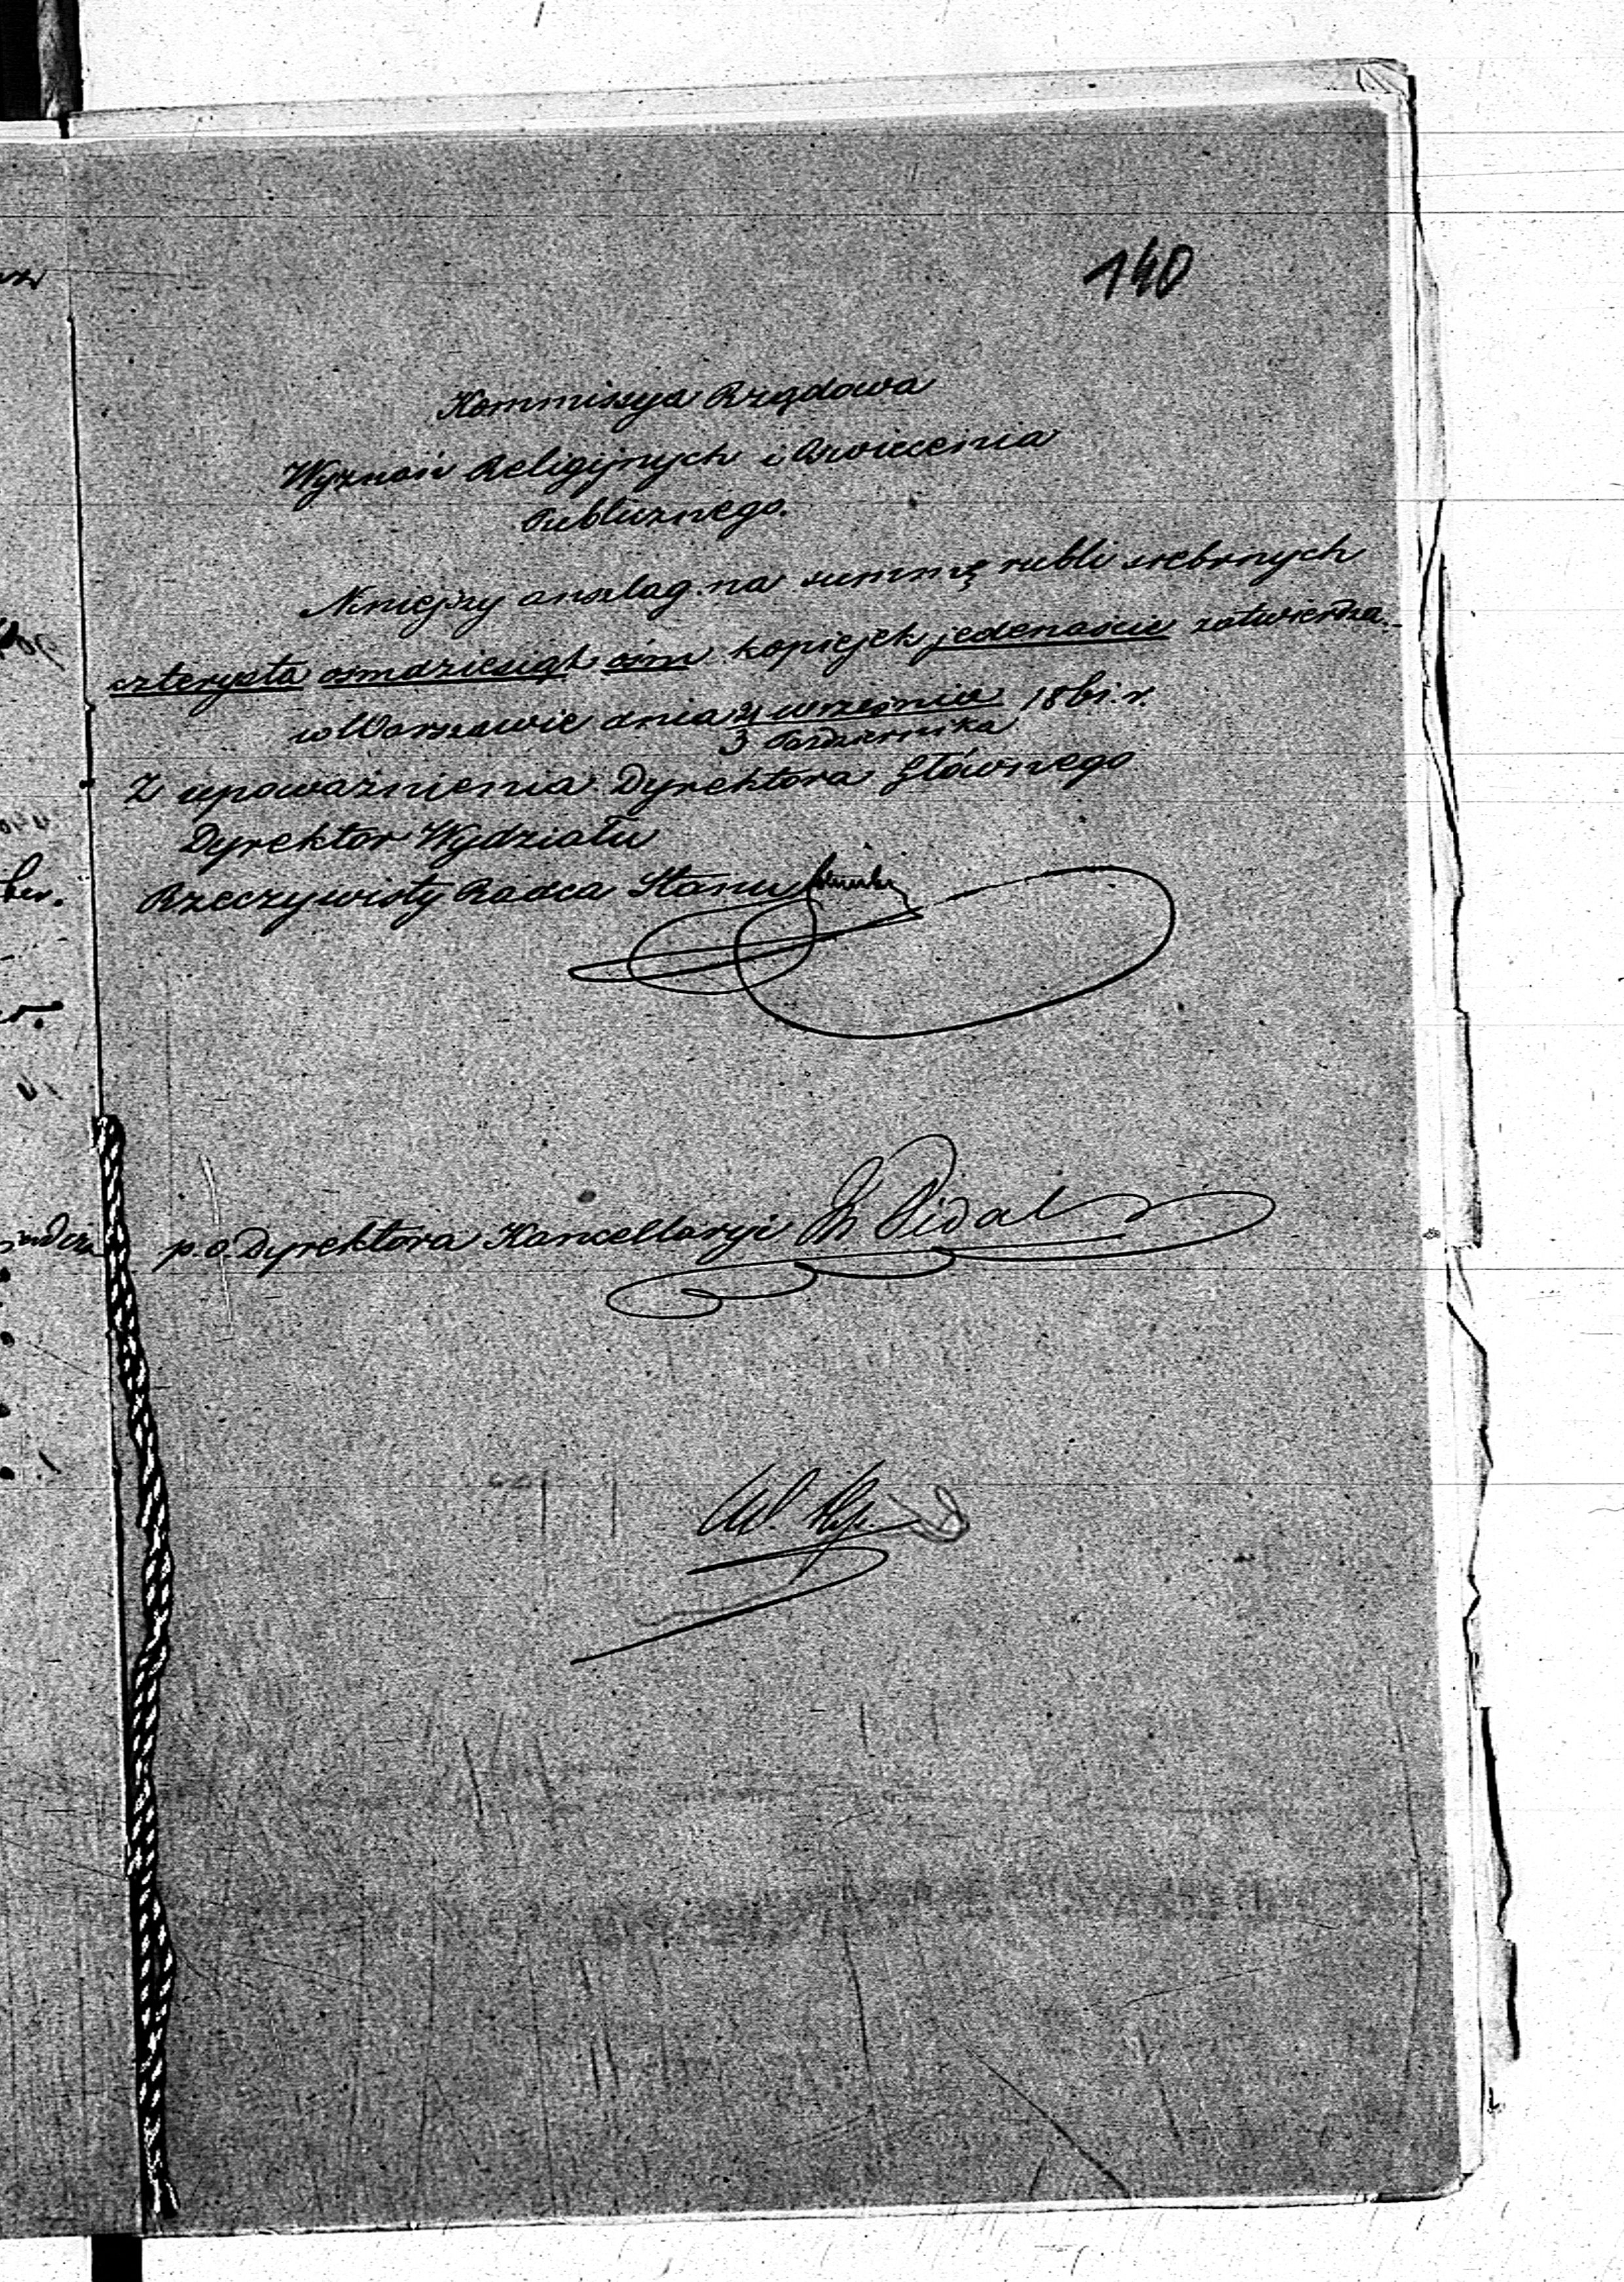 140
Kommissya Rządowa
Wyznań Religijnych i Oświecenia
Publicznego.
Niniejszy anszlag na summę rubli srebrnych
czterysta ośmdziesiąt ośm kopiejek jedenaście zatwierdza.
w Warszawie dnia 21 września 1861. r.
3 Października
Z upoważnienia Dyrektora Głównego
Dyrektor Wydziału
Rzeczywisty Radca Stanu
p. o. Dyrektora Kancellaryi Vidal